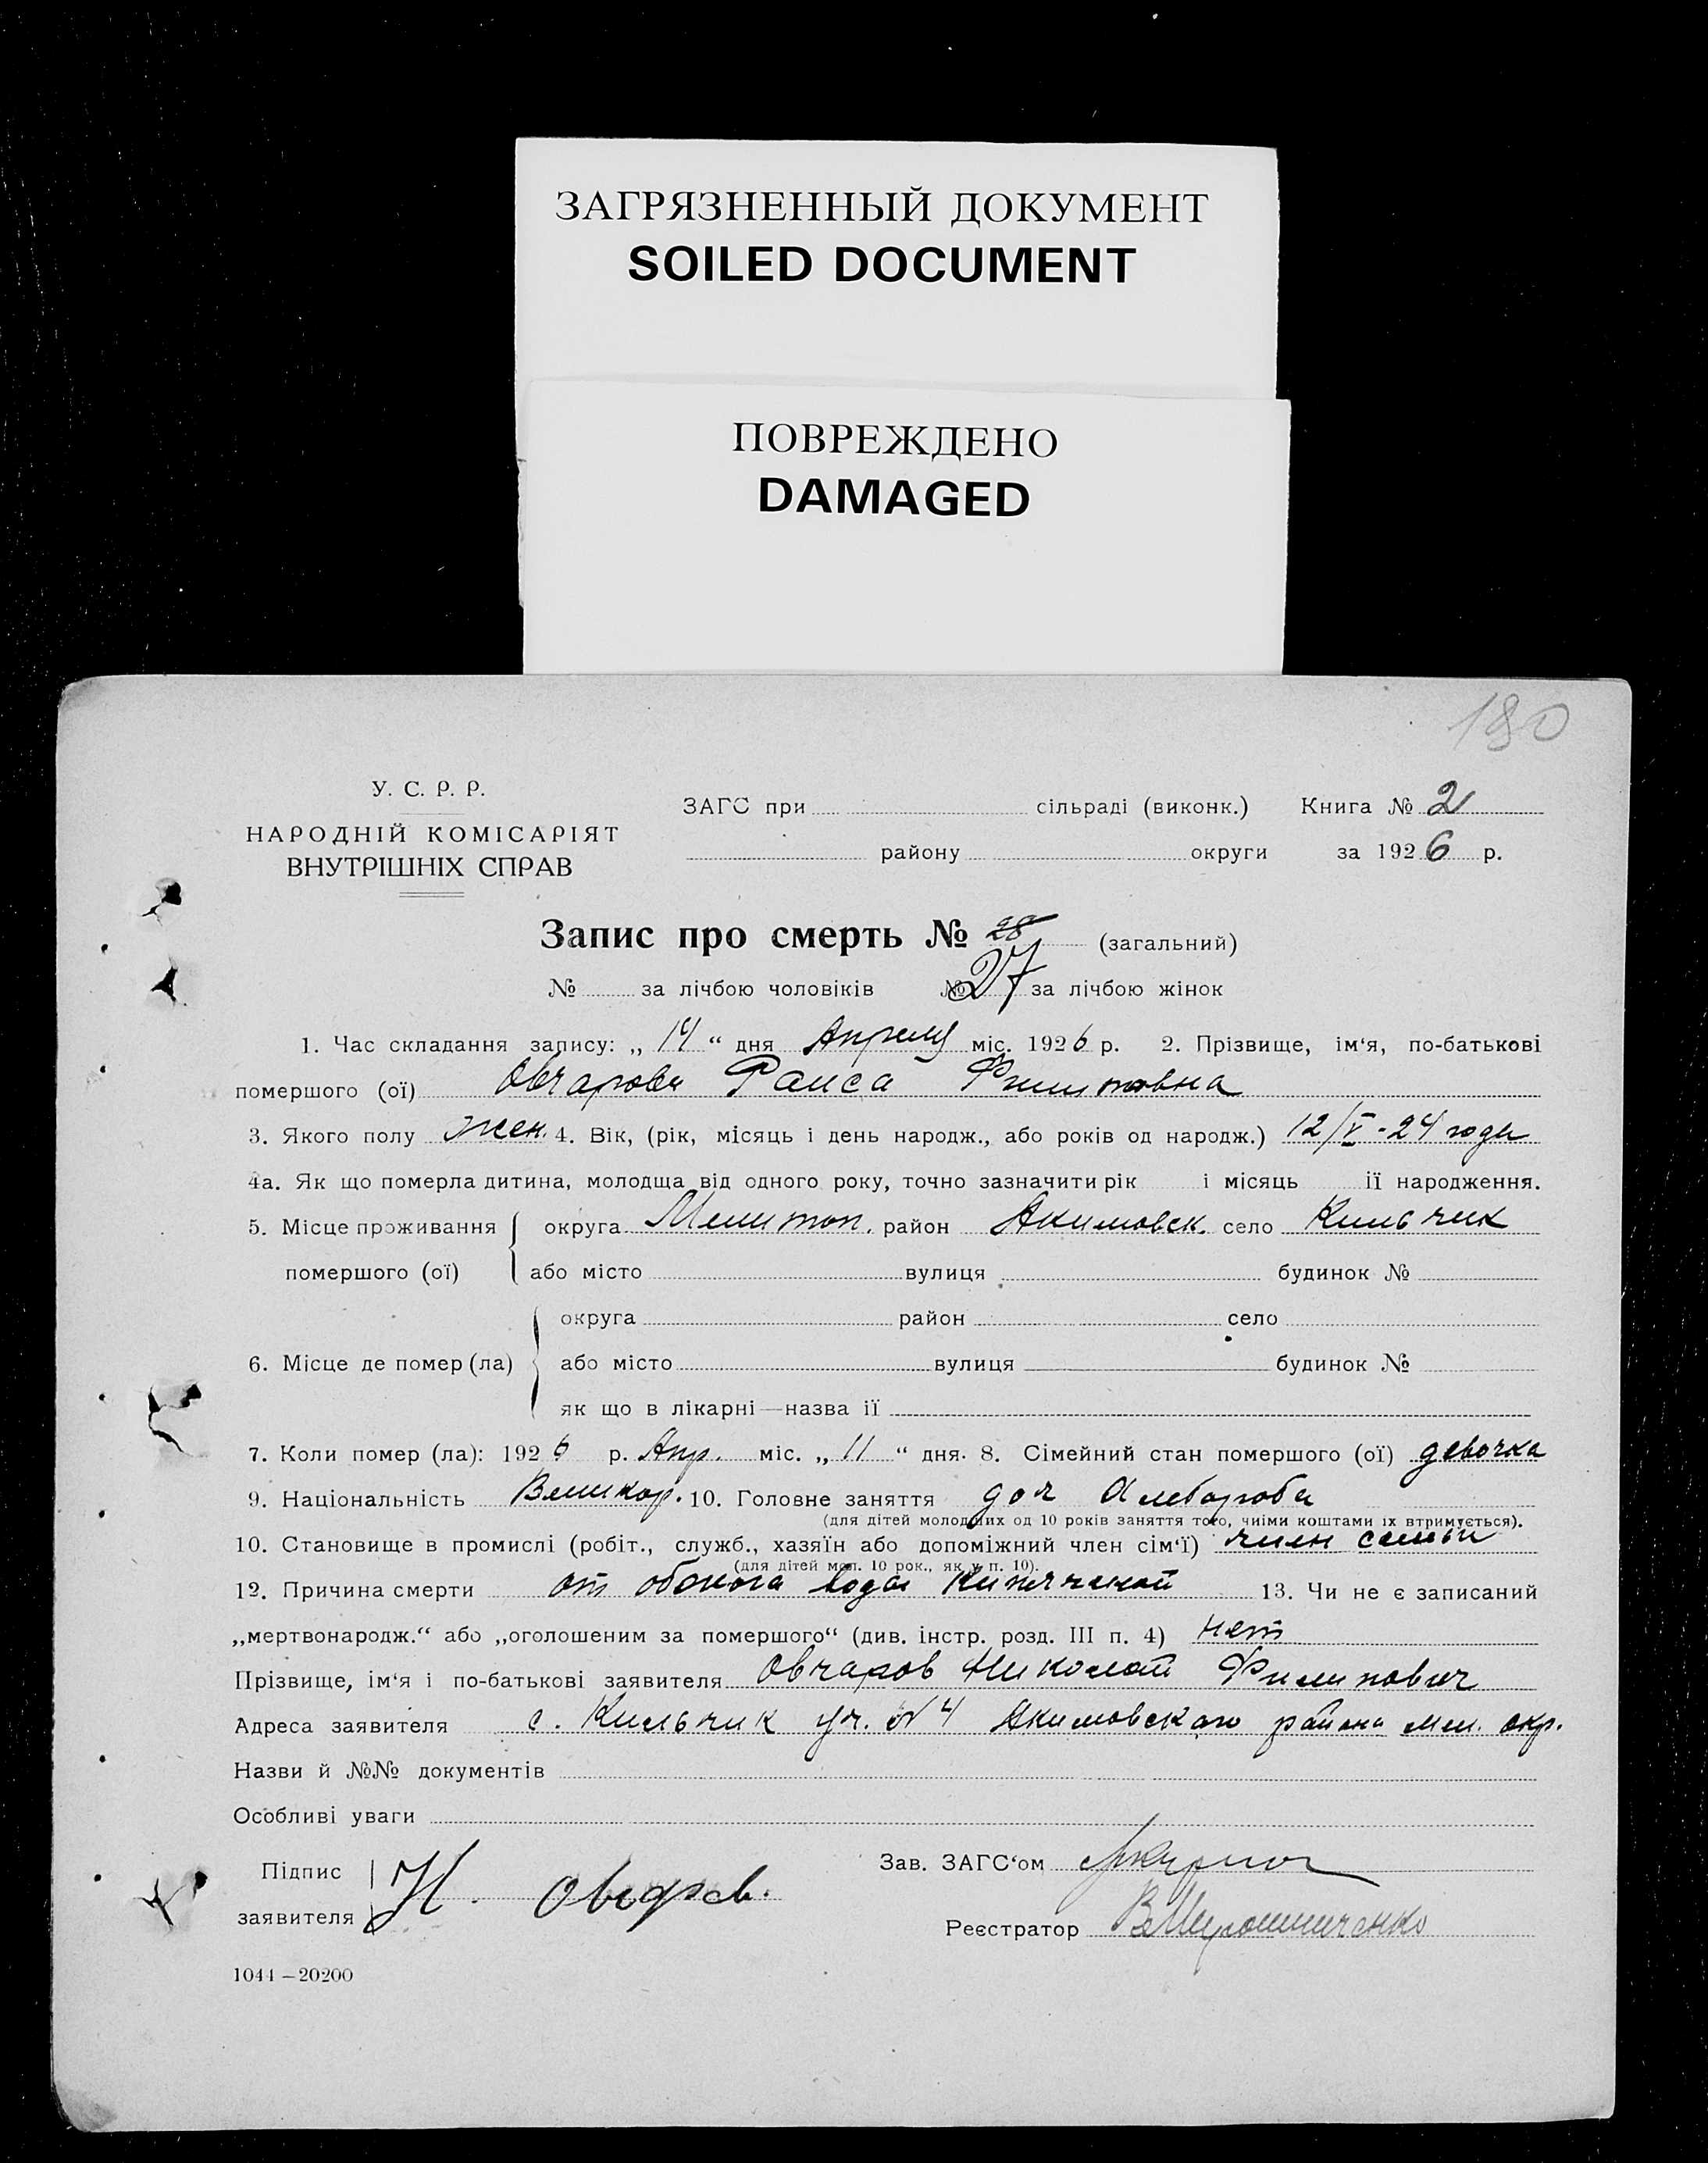 ЗАГРЯЗНЕННЫЙ ДОКУМЕНТ
SOILED DOCUMENT
ПОВРЕЖДЕНО
DAMAGED
190
У. С. Р. Р.
НАРОДНІЙ КОМІСАРІЯТ
ВНУТРІШНІХ СПРАВ
ЗАГС при сільраді (виконк.) Книга № 2
району округи за 1926 р.
Запис про смерть № 28 (загальний)
№ за лічбою чоловіків № 27 за лічбою жінок
1. Час складання запису: „ 14 “ дня Апреля міс. 1926 р. 2. Прізвище, ім‘я, по-батькові
помершого (ої) Овчарова Раиса Филиповна
3. Якого полу жен. 4. Вік, (рік, місяць і день народж., або років од народж.) 12/V - 24 года
4а. Як що померла дитина, молодща від одного року, точно зазначити рік і місяць її народження.
5. Місце проживання округа Мелитоп. район Акимовск. село Кильчик
помершого (ої) або місто вулиця будинок №
округа район село
6. Місце де помер (ла) або місто вулиця будинок №
як що в лікарні—назва її
7. Коли помер (ла): 1926 р. Апр. міс. „ 11 “ дня. 8. Сімейний стан помершого (ої) девочка
9. Національність Великор. 10. Головне заняття доч Хлебороба
(для дітей молодших од 10 років заняття того, чиїми коштами їх втримується).
10. Становище в промислі (робіт., служб., хазяїн або допоміжний член сім‘ї) член семьи
(для дітей мол. 10 рок., як у п. 10).
12. Причина смерти от обжога 13. Чи не є записаний
„мертвонародж.“ або „оголошеним за помершого“ (див. інстр. розд. III п. 4) нет
Прізвище, ім‘я і по-батькові заявителя Овчаров Николай Филипович
Адреса заявителя с. Кильчик уч. № 4 Акимовского района мел. окр.
Назви й №№ документів
Особливі уваги
Підпис
заявителя Н. Овчаров.
Зав. ЗАГС‘ом
Реєстратор В Мирошниченко
1044—20200